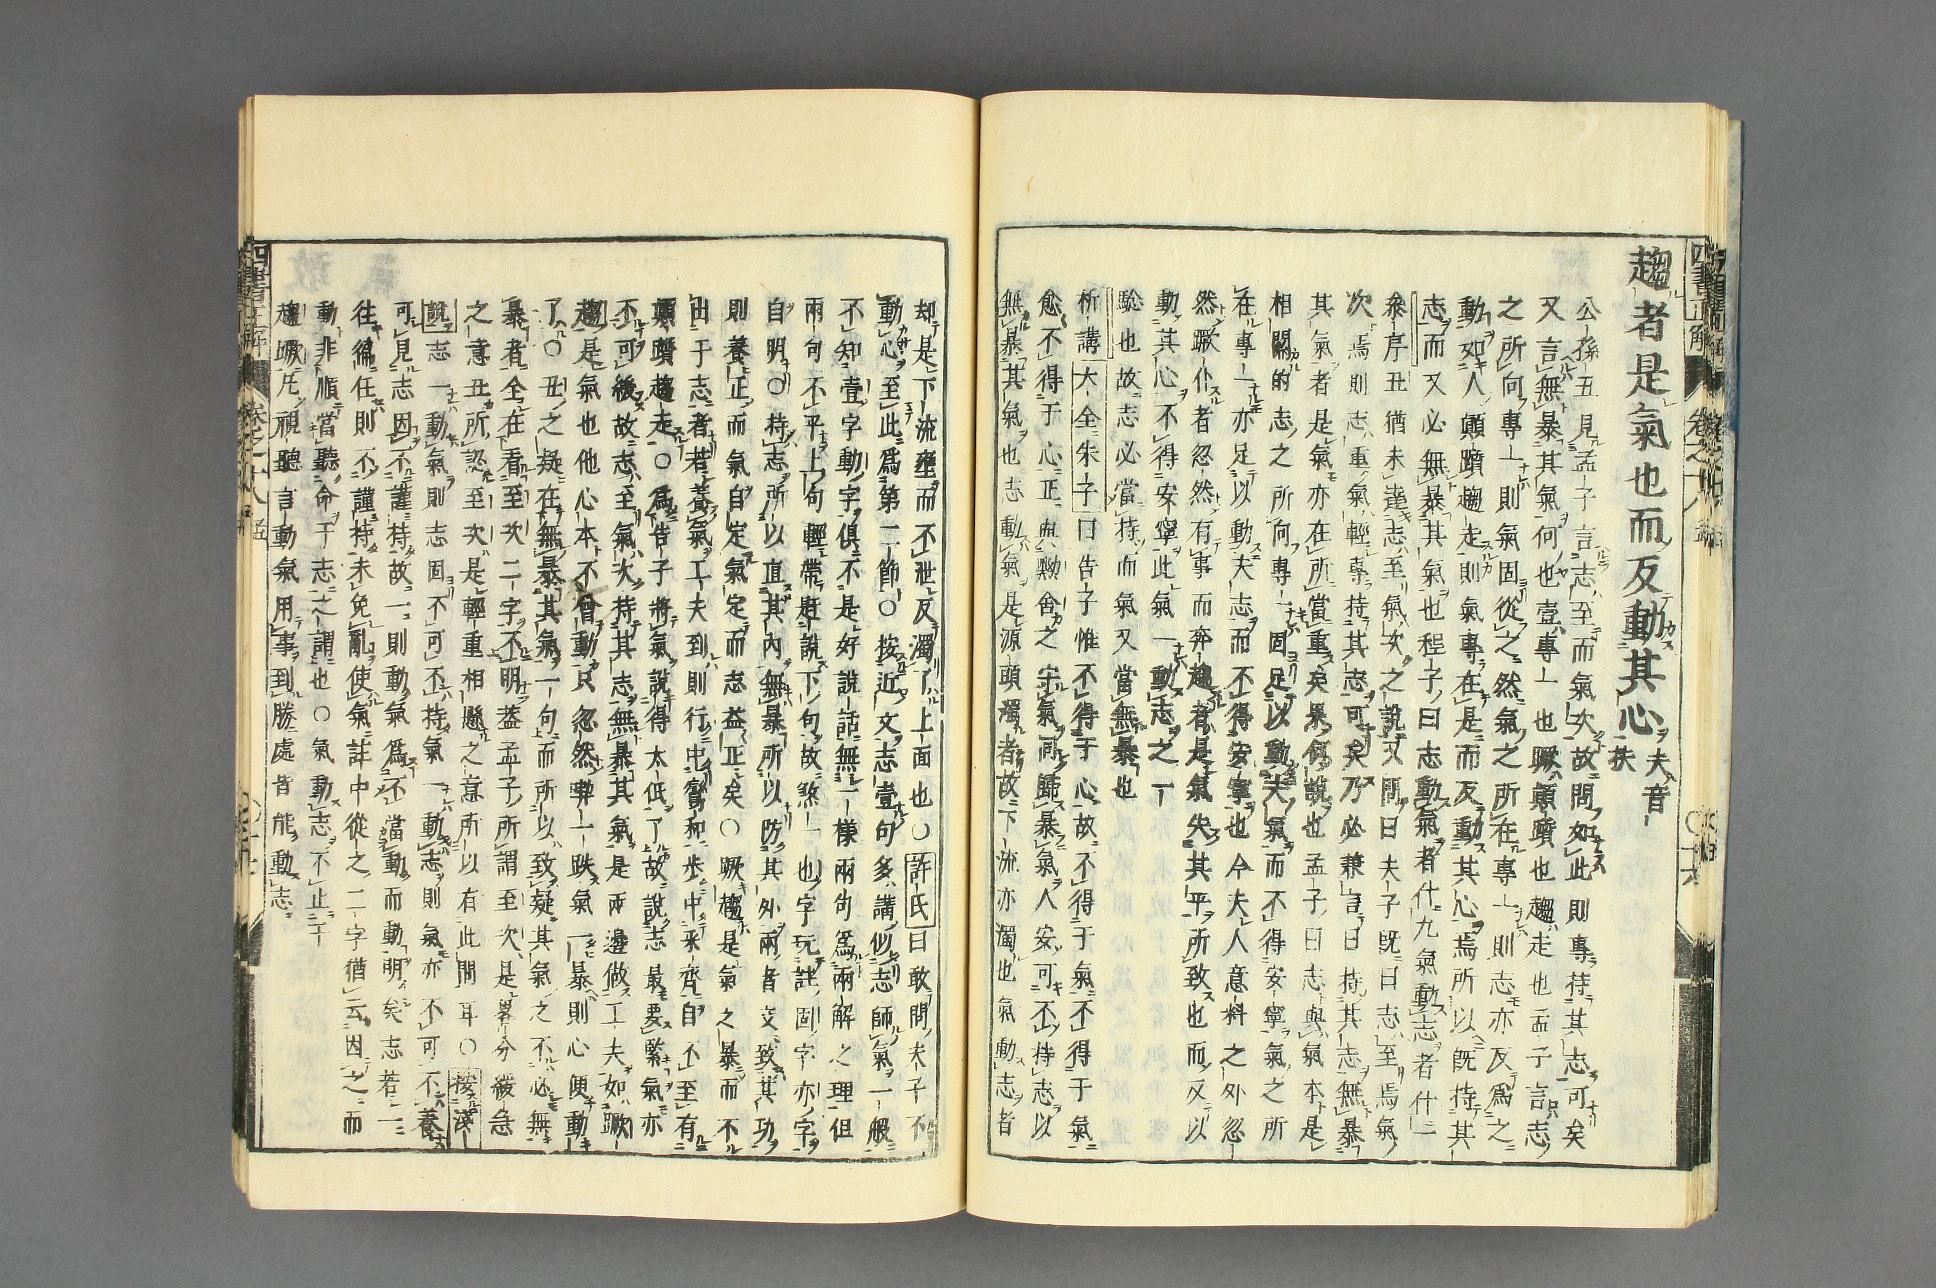 趨者是氣也而反動其心 夫音扶
公孫丑見孟子言志至而氣次故問如此則專持其志可矣
又言無暴其氣何也壹專一也蹶顚躓也趨走也孟子言志
之所向專一則氣固從之然氣之所在專一則志亦反爲之
動如人顚躓趨走則氣專在是而反動其心焉所以旣持其
志而又必無暴其氣也程子曰志動氣者什九氣動志者什一
參序丑猶未達志至氣次之說又問曰夫子旣曰志至焉氣
次焉則志重氣輕專持其志可矣乃必兼言曰持其志無暴
其氣者是氣亦在所當重矣果何說也孟子曰志與氣本是
相關的志之所向專一固足以動夫氣而不得安寧氣之所
在專一亦足以動夫志而不得安寧也今夫人意料之外忽
然蹶仆者忽然有事而奔趨者是氣失其平所致也而反以
動其心不得安寧此氣一動志之一
驗也故志必當持而氣又當無暴也
析講大全朱子曰告子惟不得于心故不得于氣不得于氣
愈不得于心正與黝舍之守氣同歸暴氣人安可不持志以
無暴其氣也志動氣是源頭濁者故下流亦濁也氣動志者
却是下流壅而不泄反濁了上面也○許氏曰敢問夫子不
動心至此爲第二節○按近文志壹句多講似志師氣一般
不知壹字動字俱不是好說話無一樣兩句爲兩解之理但
兩句不平上句輕帶起說下句故煞一也字玩註固字亦字
自明○持志所以直其內無暴所以防其外兩者交致其功
則養正而氣自定氣定而志益正矣○蹶趨是氣之暴而不
由于志者若養氣工夫到則行中鸞和步中采齊自不至有
顚躓趨走○爲告子將氣說得太低了故說志最要緊氣亦
不可後故志至氣次持其志無暴其氣是兩邊做工夫如蹶
趨是氣也他心本不曾動只忽然喫一跌氣一暴則心便動
了○丑之疑在無暴其氣一句而所以致疑其氣之不必無
暴者全在看至次二字不明葢孟子所謂至次是畧分緩急
之意丑所認至次是輕重相懸之意所以有此問耳○按淺
說志一動氣則志固不可不持氣一動志則氣亦不可不養
可見志因不謹持故一則動氣爲不當動而動明矣志若一
往徧任則不謹持未免亂使氣註中從之二字猶云因之而
動非順當聽命于志之謂也○氣動志不止一
趨蹶凡視聽言動氣用事到勝處皆能動志
四書正解
卷之十八